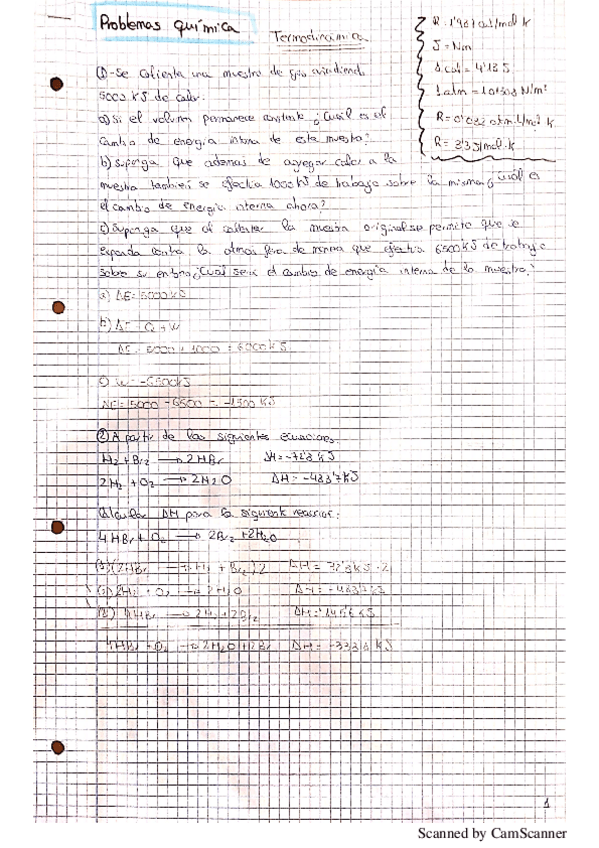 Problemas química
Termodinámica
R = 1'987 cal/mol k
J = Nm
1 cal = 4'18 J
1 atm = 101308 N/m²
R = 0'082 atm·l/mol k
R = 8'3 J/mol·k
① - Se calienta una muestra de gas añadiendo
5000 KJ de calor.
a) Si el volumen permanece constante ¿Cuál es el
cambio de energía interna de esta muestra?
b) Suponga que además de agregar calor a la
muestra también se efectúa 1000 KJ de trabajo sobre la misma ¿Cuál es
el cambio de energía interna ahora?
c) Suponga que al calentar la muestra original se permite que se
expanda contra la atmosfera de manera que efectúa 6500 KJ de trabajo
sobre su entorno ¿Cuál será el cambio de energía interna de la muestra?
a) ΔE = 5000 KJ
b) ΔE = Q + W
ΔE = 5000 + 1000 = 6000 KJ
c) W = -6500 KJ
ΔE = 5000 - 6500 = -1500 KJ
② A partir de las siguientes ecuaciones:
H₂ + Br₂ → 2HBr ΔH = -72'8 KJ
2H₂ + O₂ → 2H₂O ΔH = -483'7 KJ
Calcular ΔH para la siguiente reacción:
4HBr + O₂ → 2Br₂ + 2H₂O
(2HBr → H₂ + Br₂) 2 ΔH = 72'8 KJ · 2
2H₂ + O₂ → 2H₂O ΔH = -483'7
4HBr → 2H₂ + 2Br₂ ΔH = 145'6 KJ
4HBr + O₂ → 2H₂O + 2Br ΔH = -338
1
Scanned by CamScanner